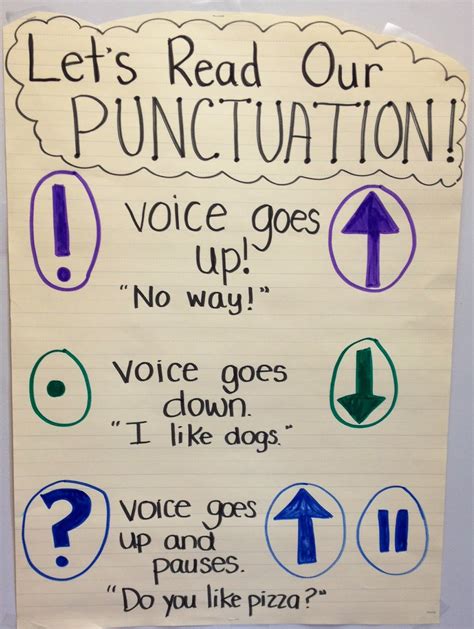 Let's Read Our
PUNCTUATION!
! voice goes
up!
"No way!"
. voice goes
down.
"I like dogs."
? voice goes
up and
pauses.
"Do you like pizza?"